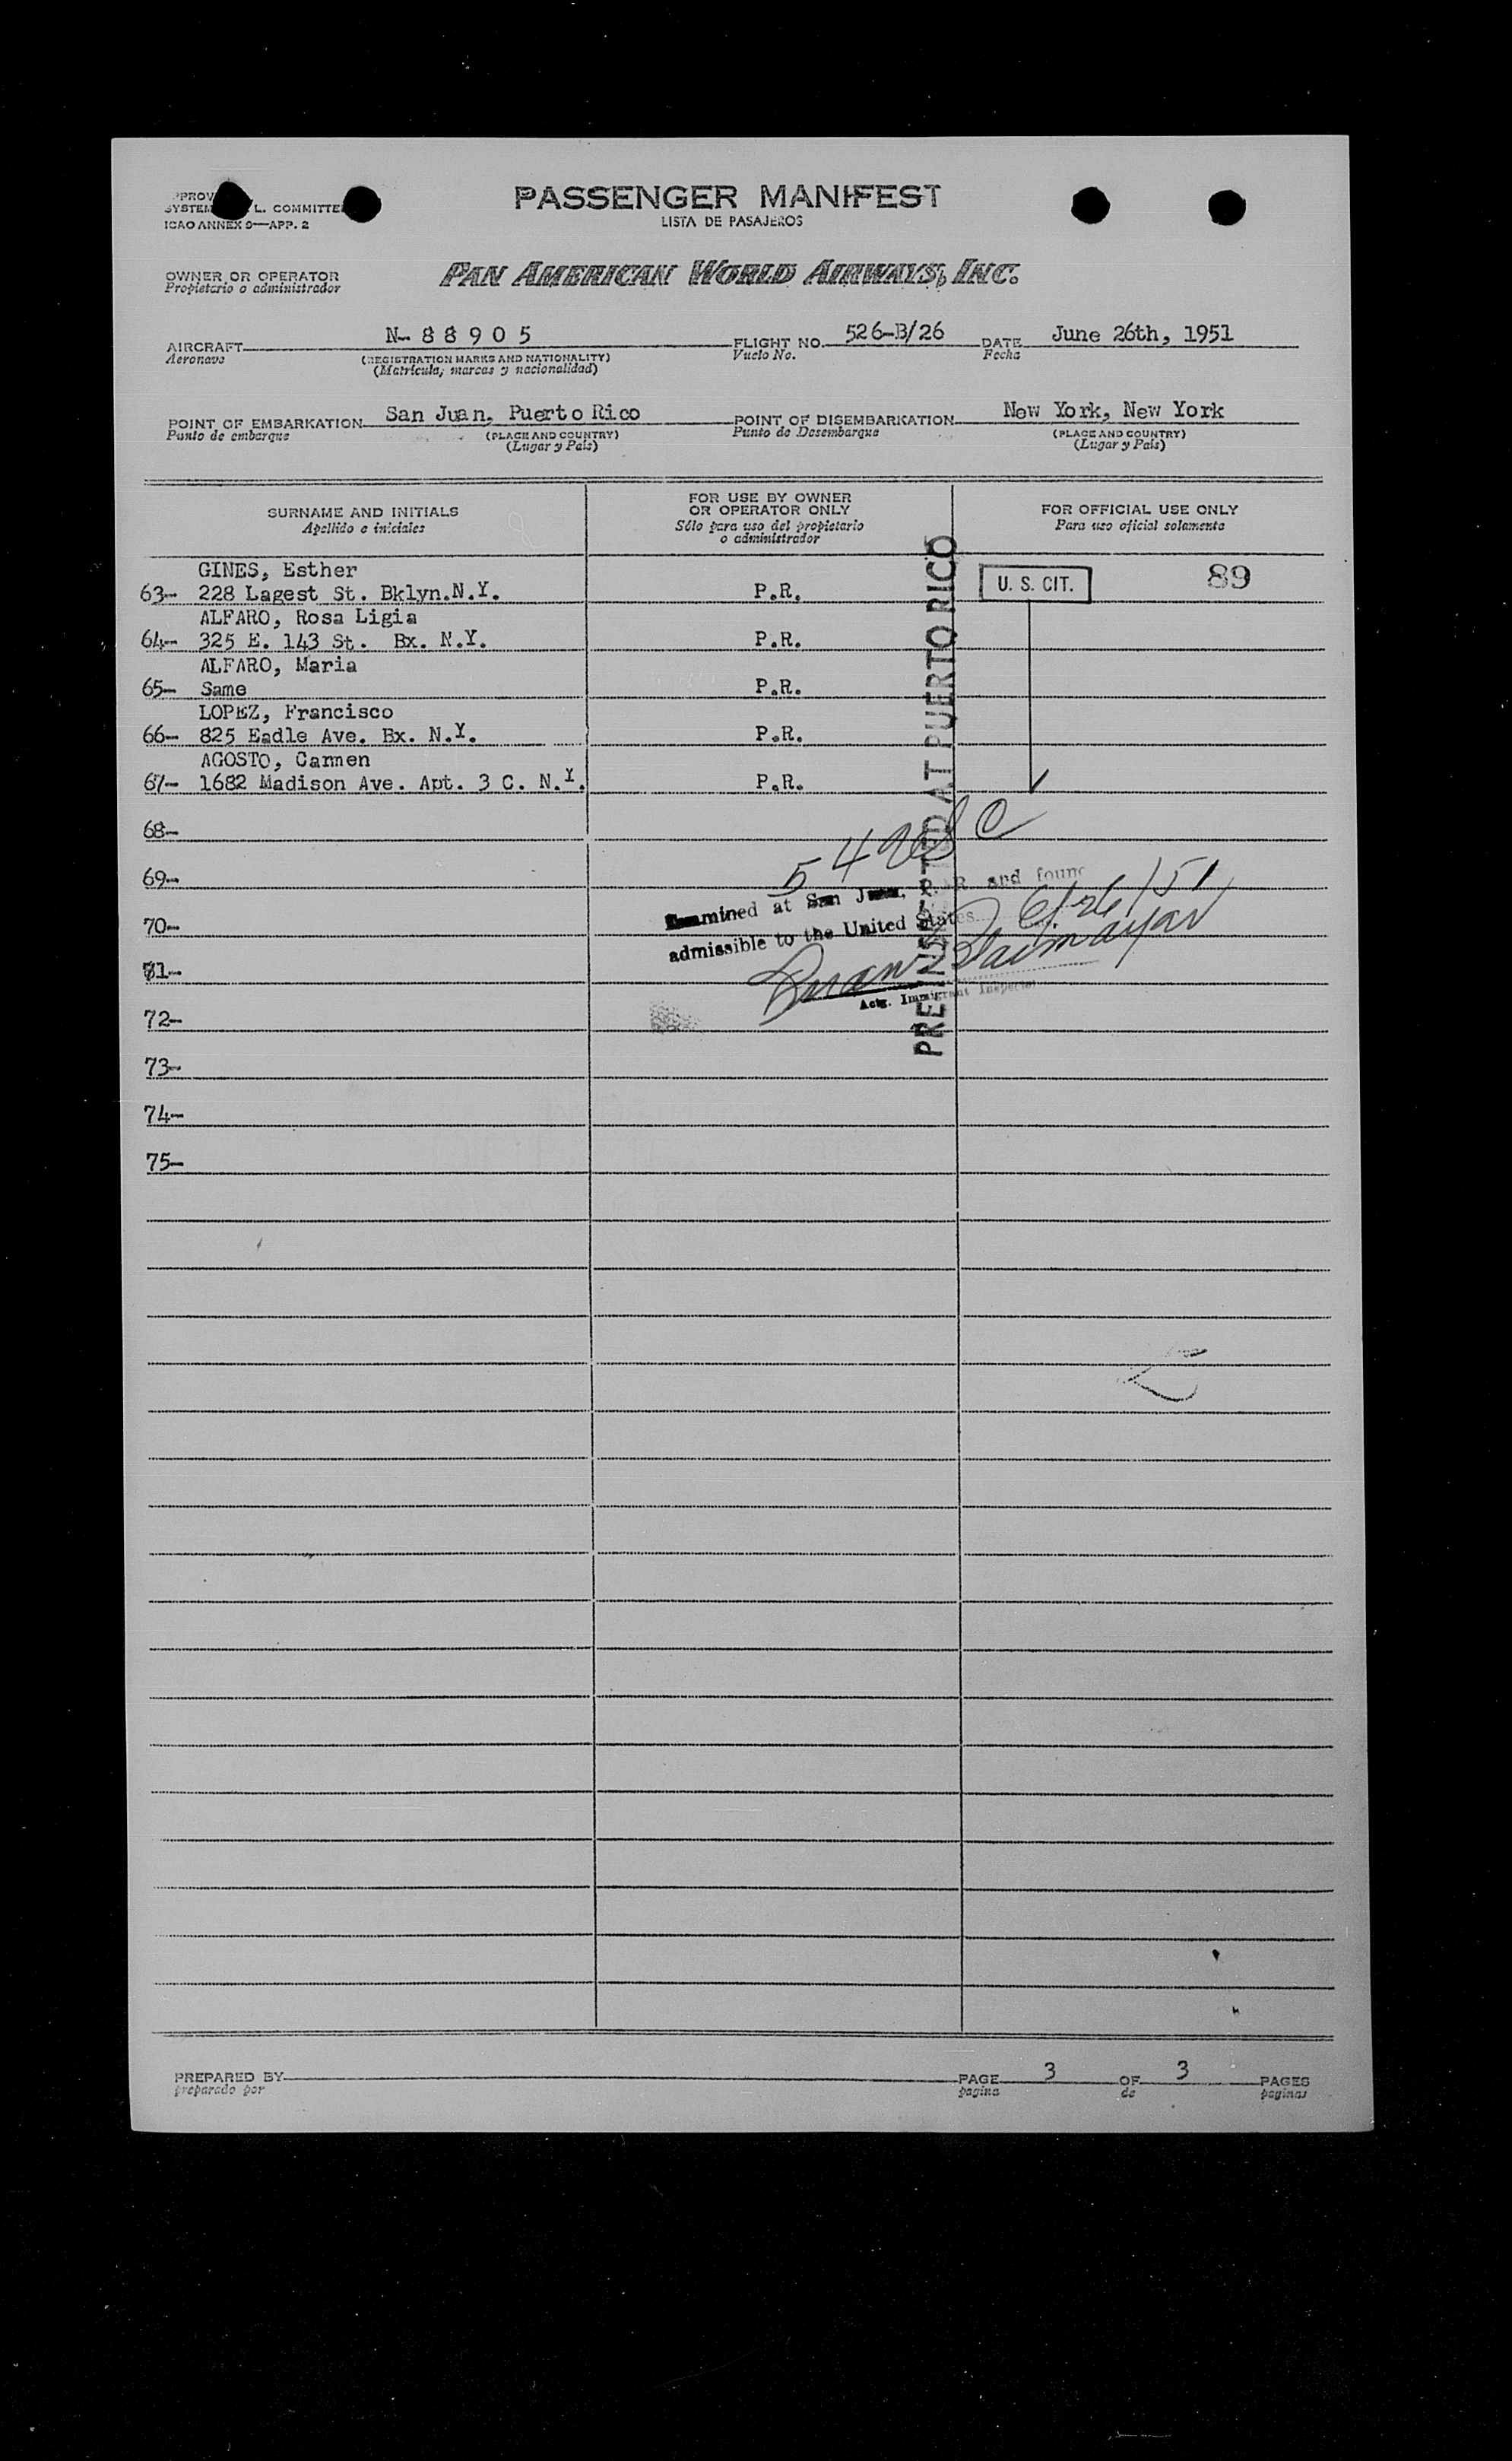 PASSENGER MANIFEST
LISTA DE PASAJEROS
L. COMMITTEE
ICAO ANNEX 9—APP. 2
OWNER OR OPERATOR
Propietario o administrador
PAN AMERICAN WORLD AIRWAYS, INC.
AIRCRAFT N-88905 FLIGHT NO. 526-B/26 DATE June 26th, 1951
Aeronave (REGISTRATION MARKS AND NATIONALITY) Vuelo No. Fecha
(Matrícula, marcas y nacionalidad)
POINT OF EMBARKATION San Juan, Puerto Rico POINT OF DISEMBARKATION New York, New York
Punto de embarque (PLACE AND COUNTRY) Punto de Desembarque (PLACE AND COUNTRY)
(Lugar y País) (Lugar y País)
SURNAME AND INITIALS
Apellido e iniciales
FOR USE BY OWNER
OR OPERATOR ONLY
Sólo para uso del propietario
o administrador
FOR OFFICIAL USE ONLY
Para uso oficial solamente
GINES, Esther
63- 228 Lagest St. Bklyn.N.Y. P.R. U. S. CIT. 89
ALFARO, Rosa Ligia
64- 325 E. 143 St. Bx. N.Y. P.R.
ALFARO, Maria
65- Same P.R.
LOPEZ, Francisco
66- 825 Eadle Ave. Bx. N.Y. P.R.
AGOSTO, Carmen
67- 1682 Madison Ave. Apt. 3 C. N.Y. P.R.
68-
69-
70-
71-
72-
73-
74-
75-
PRE INSPECTED AT PUERTO RICO
Examined at San Juan, P.R. and found
admissible to the United States 6/26/51
Actg. Immigrant Inspector
PREPARED BY PAGE 3 OF 3 PAGES
preparado por pagina de paginas